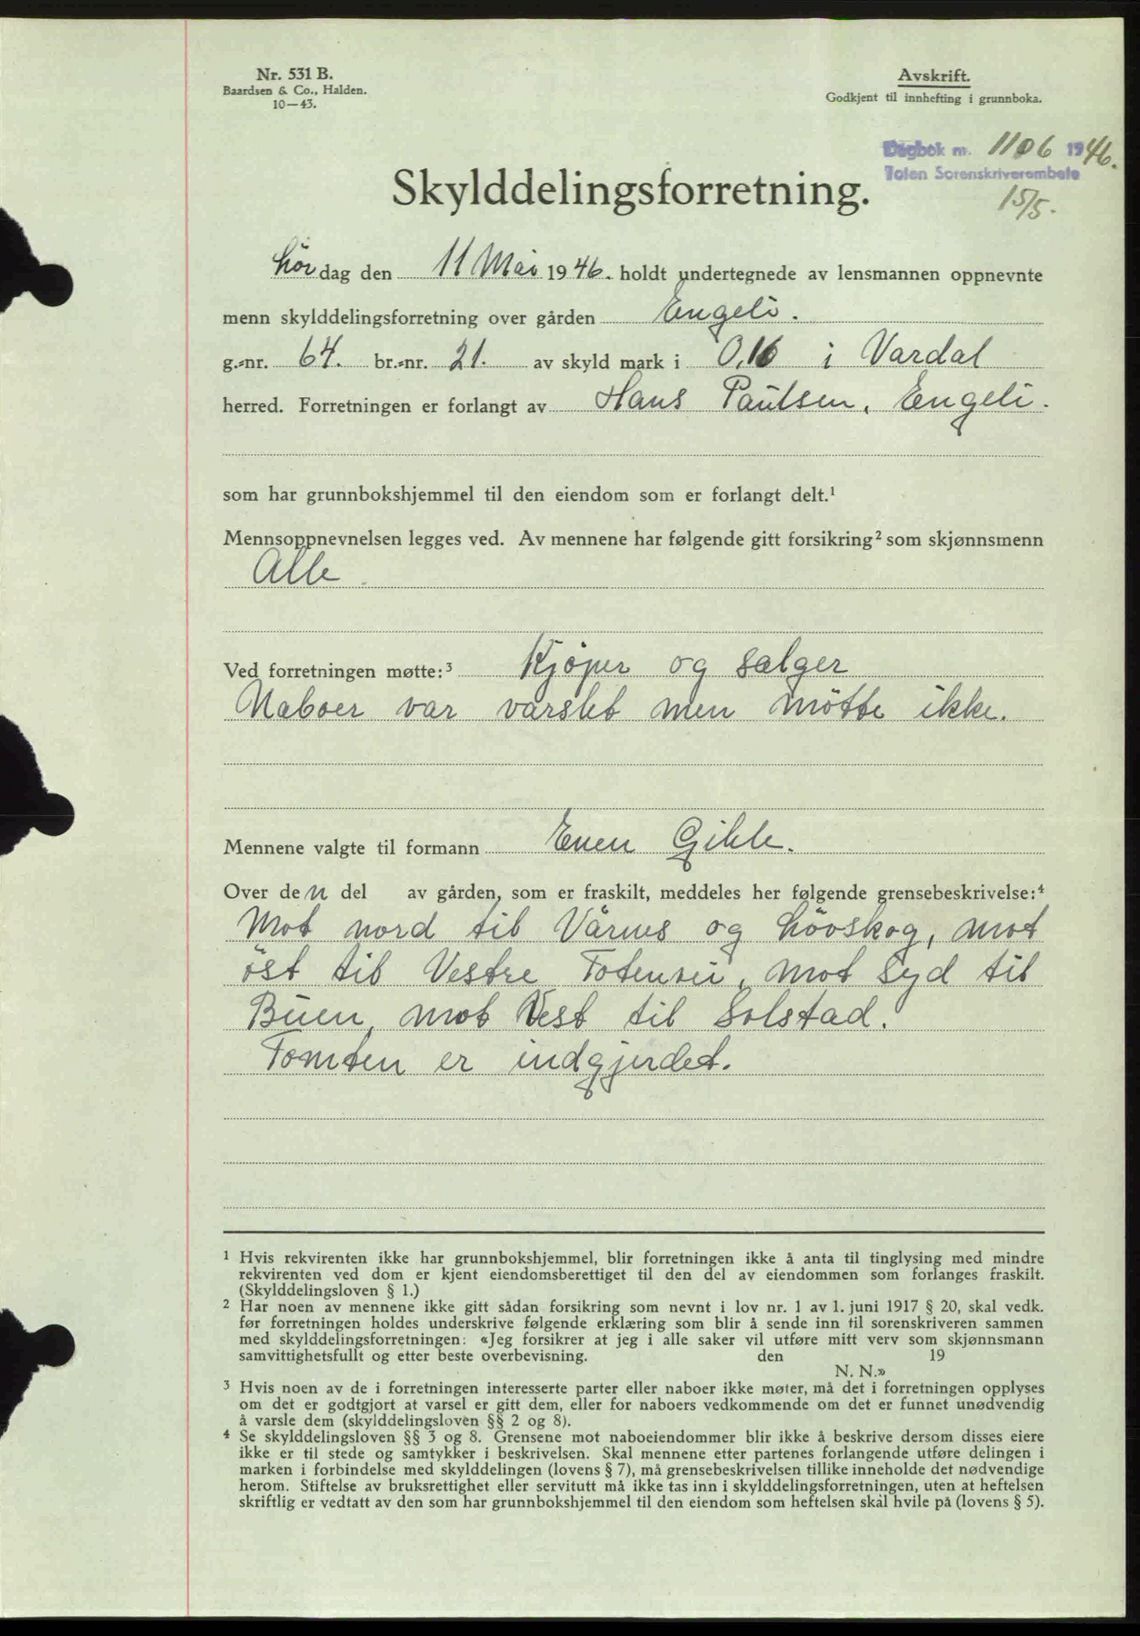 Nr. 531 B.
Baardsen & Co., Halden.
10—43.
Avskrift.
Godkjent til innhefting i grunnboka.
Dagbok nr. 1106 1946.
Toten Sorenskriverembete
15/5.
Skylddelingsforretning.
Lördag den 11 Mai 1946. holdt undertegnede av lensmannen oppnevnte
menn skylddelingsforretning over gården Engeli.
g.-nr. 64. br.-nr. 21. av skyld mark i 0,16 i Vardal
herred. Forretningen er forlangt av Hans Paulsen, Engeli.
som har grunnbokshjemmel til den eiendom som er forlangt delt.¹
Mennsoppnevnelsen legges ved. Av mennene har følgende gitt forsikring² som skjønnsmenn
Alle.
Ved forretningen møtte:³ Kjöper og selger
Naboer var varslet men mötte ikke.
Mennene valgte til formann Even Gihle.
Over den del av gården, som er fraskilt, meddeles her følgende grensebeskrivelse:⁴
Mot nord til Värnes og Lövskog, mot
öst til Vestre Totenvei, mot Syd til
Buen, mot Vest til Solstad.
Tomten er indgjerdet.
¹ Hvis rekvirenten ikke har grunnbokshjemmel, blir forretningen ikke å anta til tinglysing med mindre
rekvirenten ved dom er kjent eiendomsberettiget til den del av eiendommen som forlanges fraskilt.
(Skylddelingsloven § 1.)
² Har noen av mennene ikke gitt sådan forsikring som nevnt i lov nr. 1 av 1. juni 1917 § 20, skal vedk.
før forretningen holdes underskrive følgende erklæring som blir å sende inn til sorenskriveren sammen
med skylddelingsforretningen: «Jeg forsikrer at jeg i alle saker vil utføre mitt verv som skjønnsmann
samvittighetsfullt og etter beste overbevisning. den 19
N. N.»
³ Hvis noen av de i forretningen interesserte parter eller naboer ikke møter, må det i forretningen opplyses
om det er godtgjort at varsel er gitt dem, eller for naboers vedkommende om det er funnet unødvendig
å varsle dem (skylddelingsloven §§ 2 og 8).
⁴ Se skylddelingsloven §§ 3 og 8. Grensene mot naboeiendommer blir ikke å beskrive dersom disses eiere
ikke er til stede og samtykker i beskrivelsen. Skal mennene etter partenes forlangende utføre delingen i
marken i forbindelse med skylddelingen (lovens § 7), må grensebeskrivelsen tillike inneholde det nødvendige
herom. Stiftelse av bruksrettighet eller servitutt må ikke tas inn i skylddelingsforretningen, uten at heftelsen
skriftlig er vedtatt av den som har grunnbokshjemmel til den eiendom som heftelsen skal hvile på (lovens § 5).